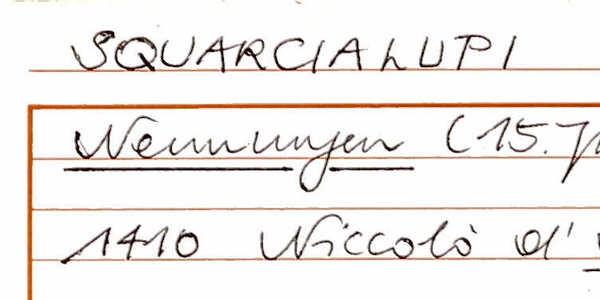 SQUARCIALUPI
Nennungen (15.
1410 Niccolò d'